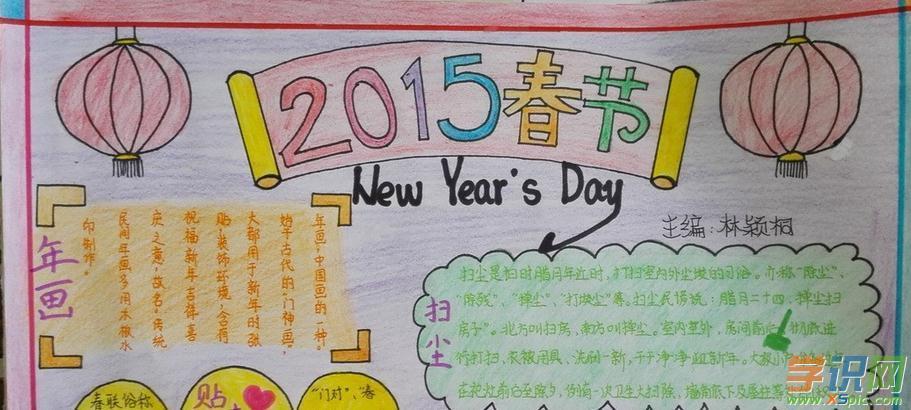 2015春节
New Year's Day
主编:林颖桐
年画
年画,中国画的一种。
始于古代的"门神画",
大都用于新年时张
贴,装饰环境,含有
祝福新年吉祥喜
庆之意,故名。传统
民间年画多用木板水
印制作。
扫尘
扫尘是扫时腊月年近时,打扫室内外尘垢的习俗。亦称"除尘"、
"除残"、"掸尘"、"打埃尘"等。扫尘民谚说:腊月二十四,掸尘扫
房子"。北方叫扫房,南方叫掸尘。室内室外,房间前后,彻底进
行打扫,衣被用具,洗刷一新,干干净净迎新年。大家小
在祀灶前后至除夕,例有一次卫生大扫除,墙角床下及屋柱
春联俗称
贴
"门对"、"春
学识网
www.xspic.com